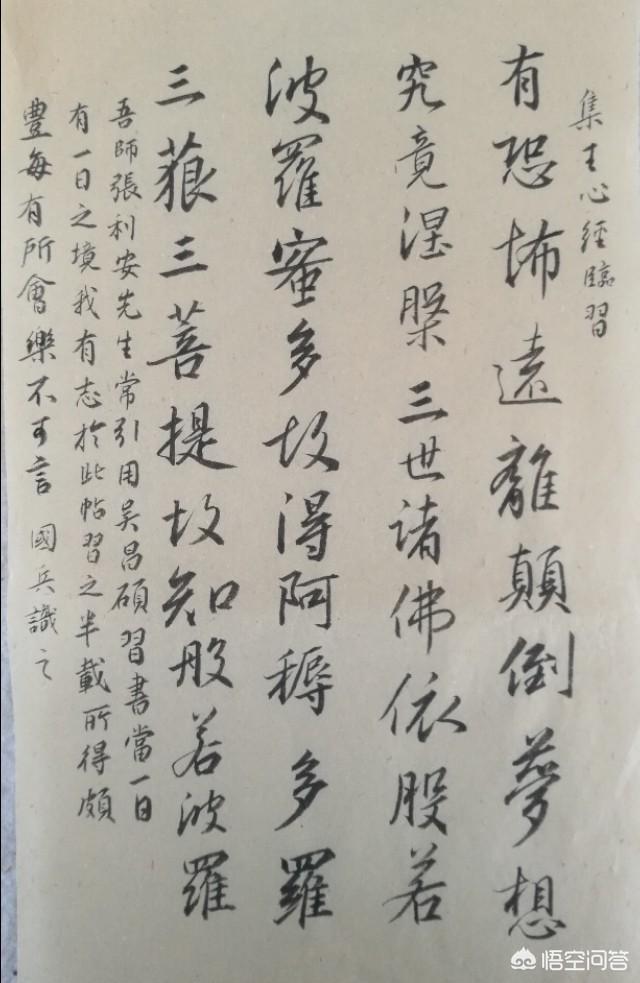 集王心經臨習
有恐怖遠離顛倒夢想
究竟涅槃三世諸佛依股若
波羅蜜多故得阿耨多羅
三藐三菩提故知般若波羅
吾師張利安先生常引用吴昌碩習書當一日
有一日之境我有志於此帖習之半載所得頗
豊每有所會樂不可言 國兵識之
悟空问答